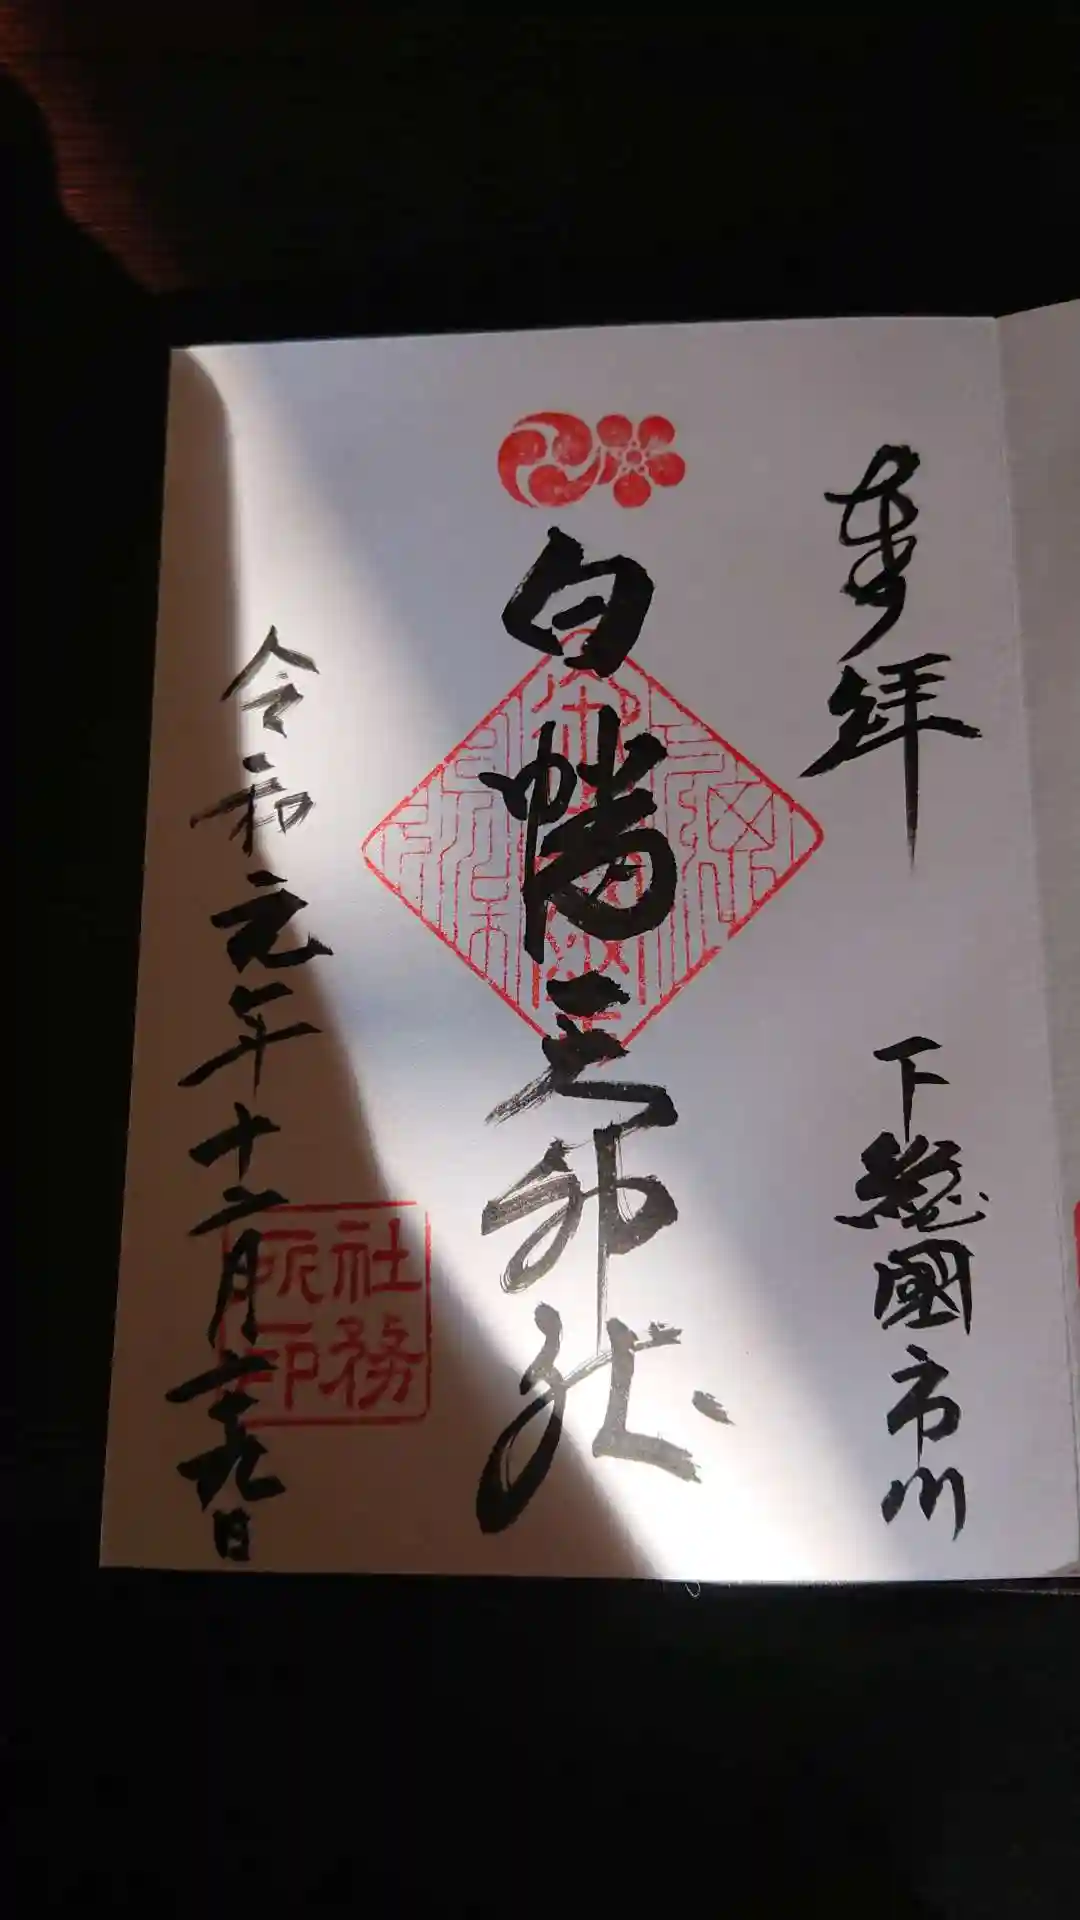 奉拝
下總國市川
白幡天神社
令和元年十二月二十九日
社務
所印